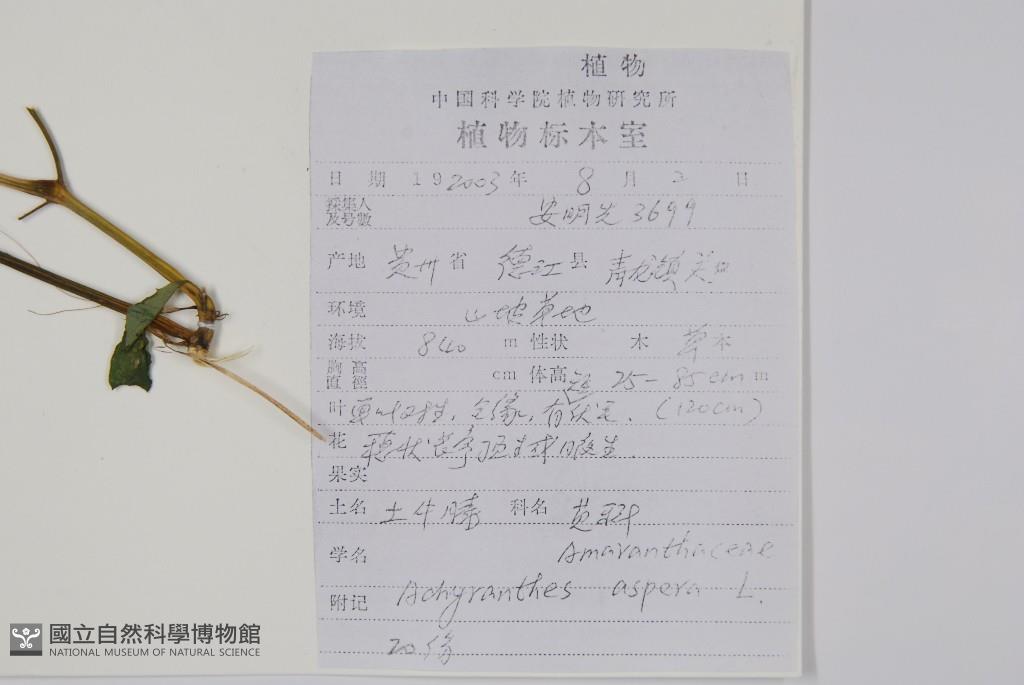 植物
中国科学院植物研究所
植物标本室
日 期 19 2003 年 8 月 2 日
採集人
及号數 安明先 3699
产地 贵州 省 德江 县 青龙镇
环境 山地草地
海拔 840 m 性状 木 草本
胸高
直徑 cm 体高 25-85cm m
叶 全缘, 有伏毛. (120cm)
花 穗状 顶生 腋生.
果实
土名 土牛膝 科名 苋科
学名 Amaranthaceae
附记 Achyranthes aspera L.
20份
國立自然科學博物館
NATIONAL MUSEUM OF NATURAL SCIENCE